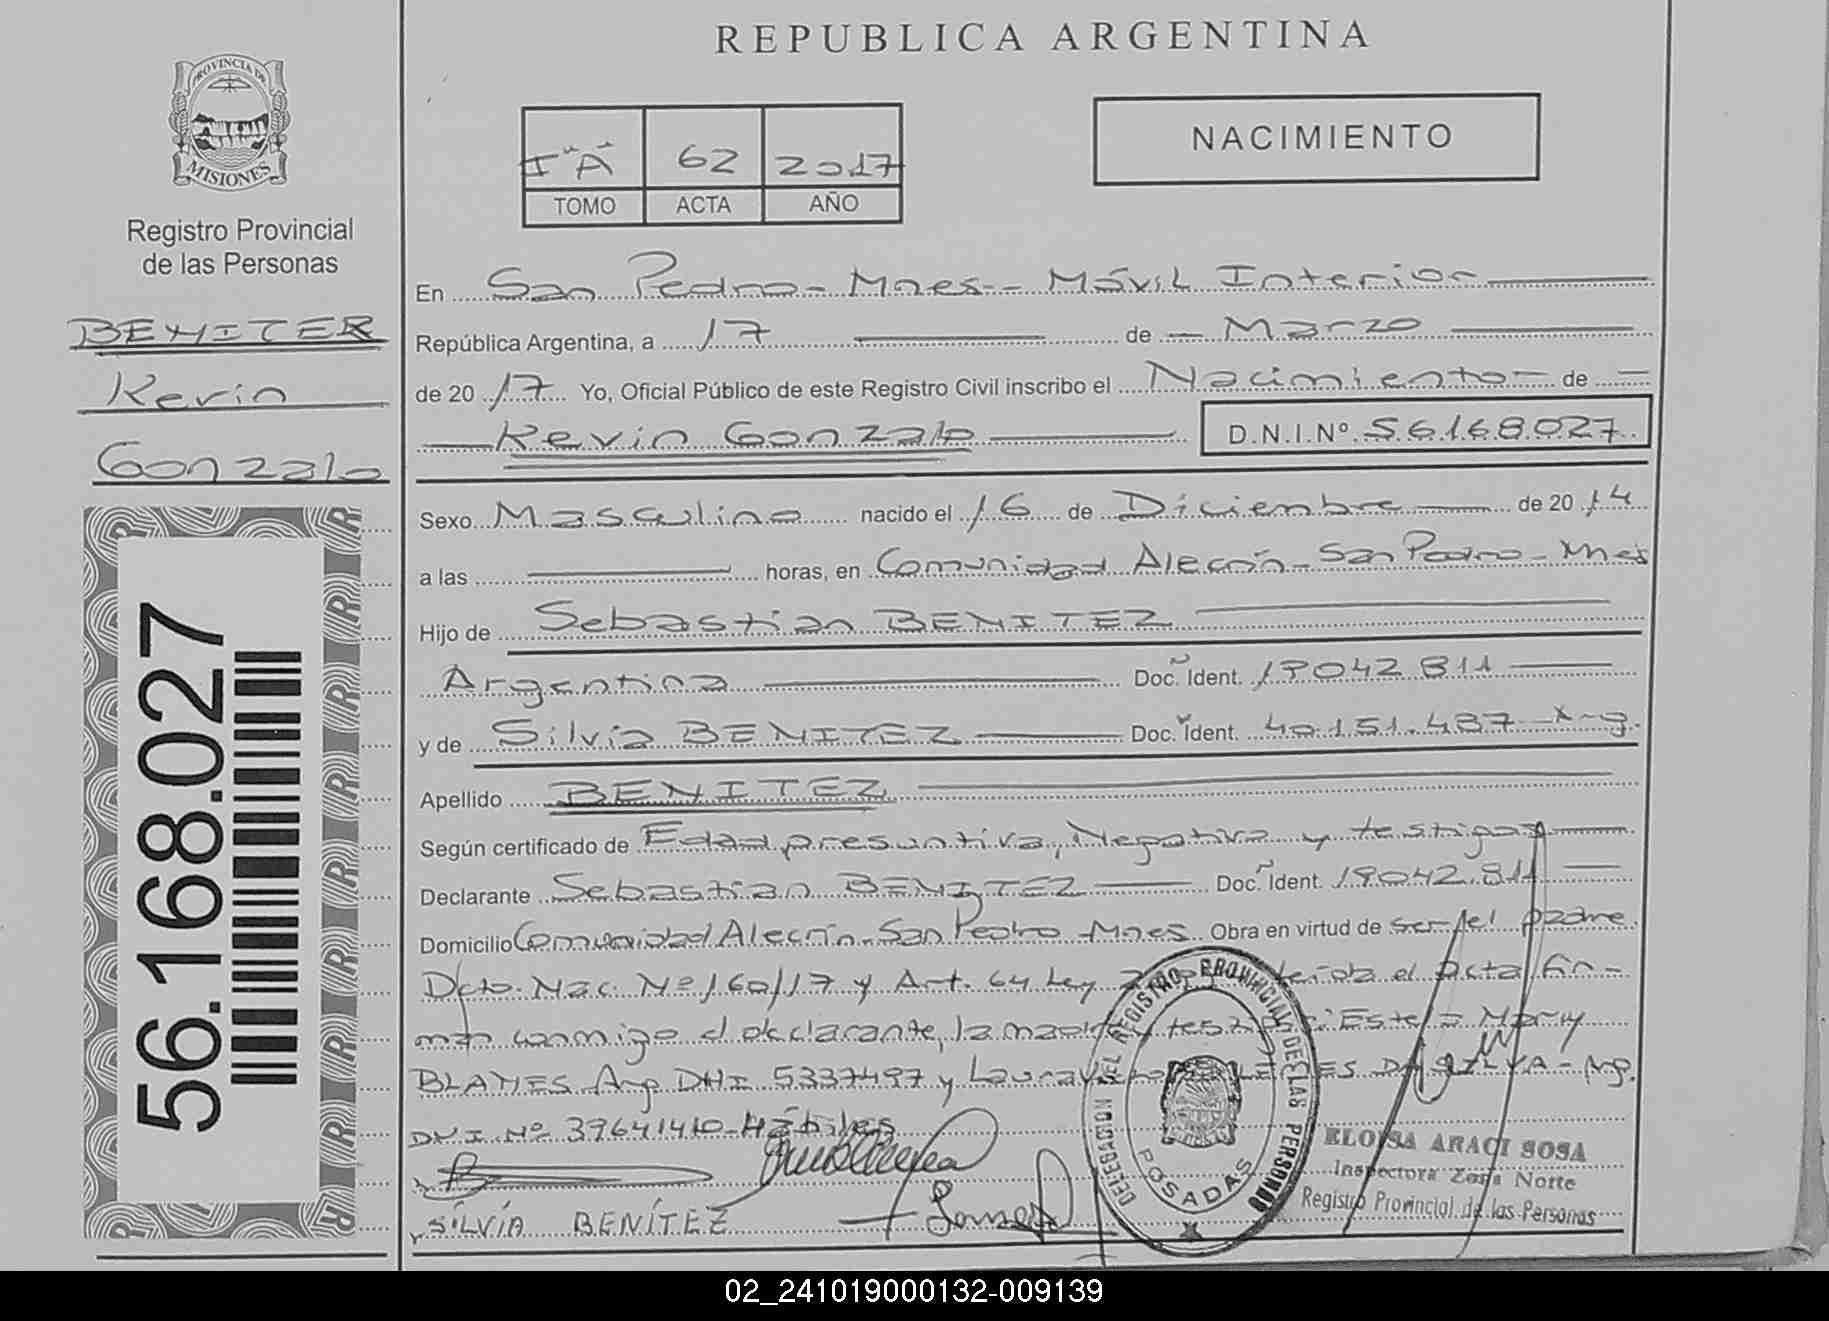 REPUBLICA ARGENTINA
PROVINCIA DE
MISIONES
Registro Provincial
de las Personas
BENITEZ
Kevin
Gonzalo
56.168.027
I "A" 62 2017
TOMO ACTA AÑO
NACIMIENTO
En San Pedro - Mnes - Móvil Interior
República Argentina, a 17 de Marzo
de 20 17 Yo, Oficial Público de este Registro Civil inscribo el Nacimiento de
Kevin Gonzalo D.N.I.Nº 56168027
Sexo Masculino nacido el 16 de Diciembre de 20 14
a las horas, en Comunidad Alecrín - San Pedro - Mnes
Hijo de Sebastian BENITEZ
Argentina Doc. Ident. 19042811
y de Silvia BENITEZ Doc. Ident. 40.151.487
Apellido BENITEZ
Según certificado de Edad presuntiva, Negativa y testigos
Declarante Sebastian BENITEZ Doc. Ident. 19042.811
Domicilio Comunidad Alecrín - San Pedro - Mnes Obra en virtud de ser el padre
Dcto. Nac. Nº 160/17 y Art. 64 Ley el acta fir-
man conmigo el declarante, la madre y testigos: Estela Mary
BLANES Arg DNI 5337497 y Laura DA SILVA - Arg.
DNI Nº 39641410 - Hábiles
SILVIA BENÍTEZ
DELEGACION DEL REGISTRO PROVINCIAL DE LAS PERSONAS
POSADAS
ELOISA ARACI SOSA
Inspectora Zona Norte
Registro Provincial de las Personas
02_241019000132-009139